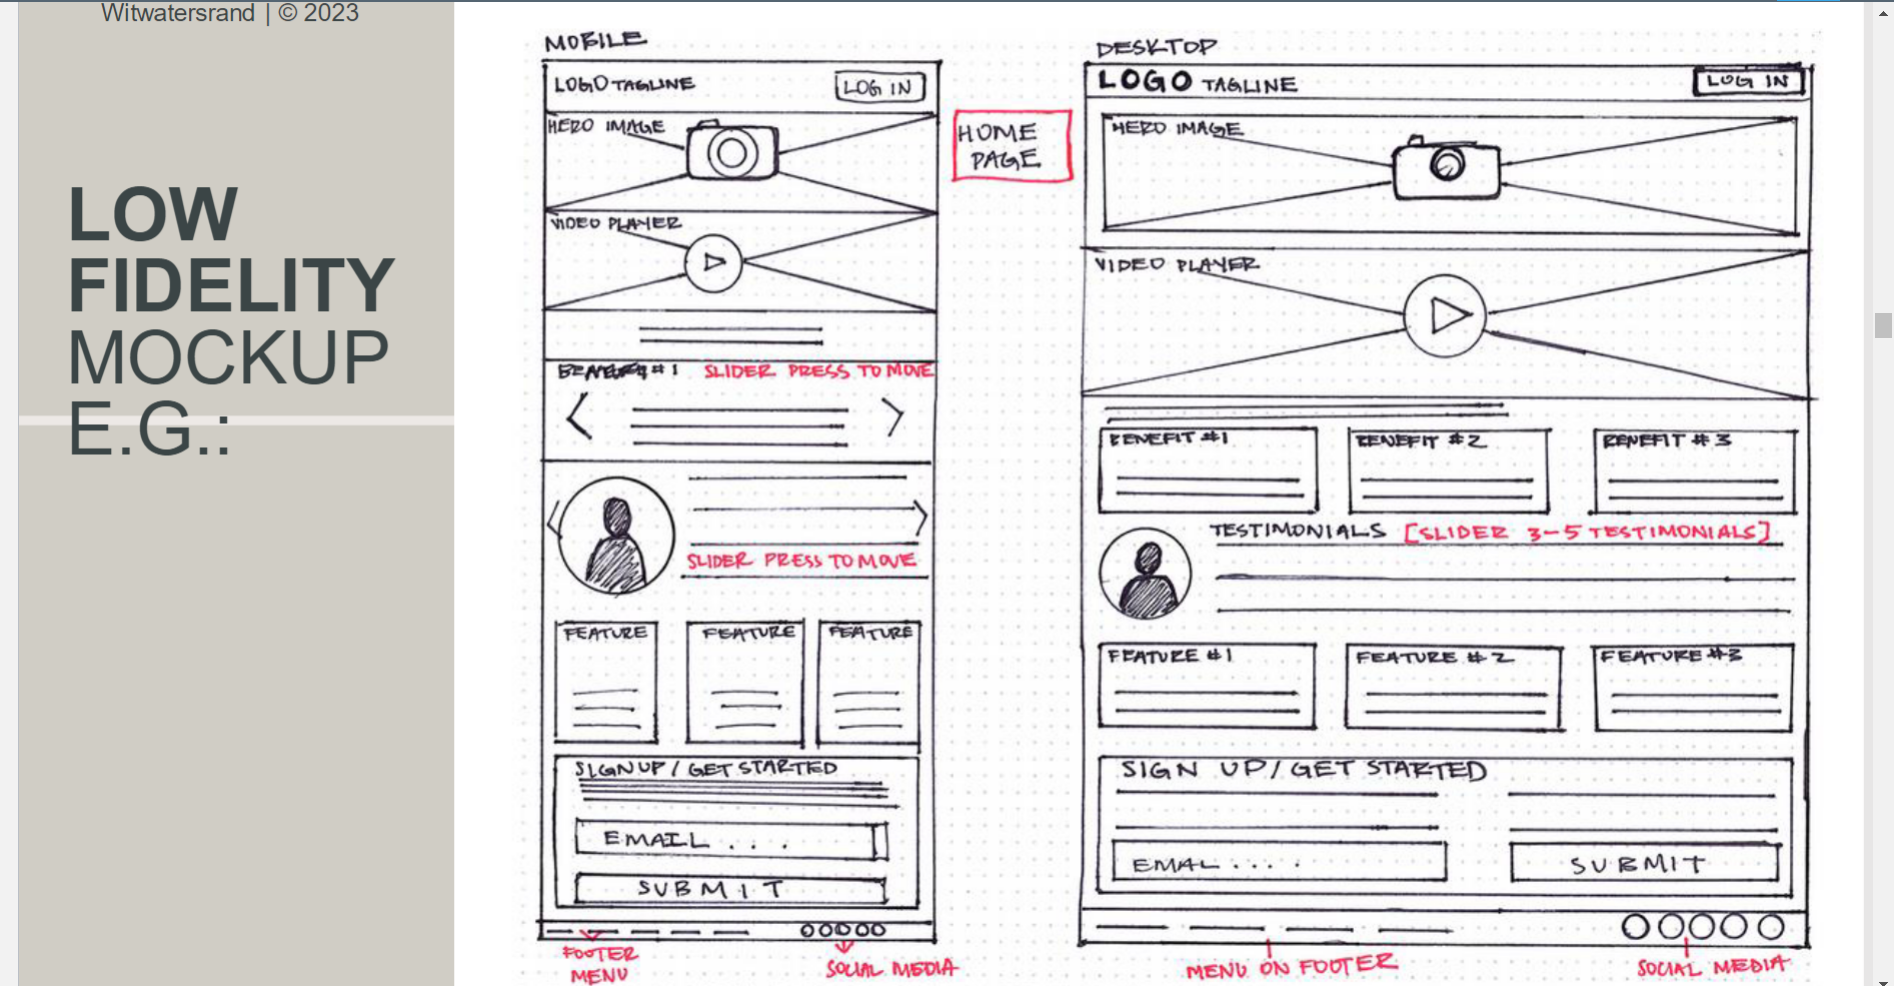 Witwatersrand | © 2023
LOW
FIDELITY
MOCKUP
E.G.:
MOBILE
LOGO TAGLINE
LOG IN
HERO IMAGE
VIDEO PLAYER
#1 SLIDER PRESS TO MOVE
SLIDER PRESS TO MOVE
FEATURE
FEATURE
FEATURE
SIGN UP / GET STARTED
EMAIL . . .
SUBMIT
FOOTER
MENU
SOCIAL MEDIA
HOME
PAGE
DESKTOP
LOGO TAGLINE
LOG IN
HERO IMAGE
VIDEO PLAYER
BENEFIT #1
BENEFIT #2
BENEFIT #3
TESTIMONIALS [SLIDER 3-5 TESTIMONIALS]
FEATURE #1
FEATURE #2
FEATURE #3
SIGN UP / GET STARTED
EMAL . . . .
SUBMIT
MENU ON FOOTER
SOCIAL MEDIA